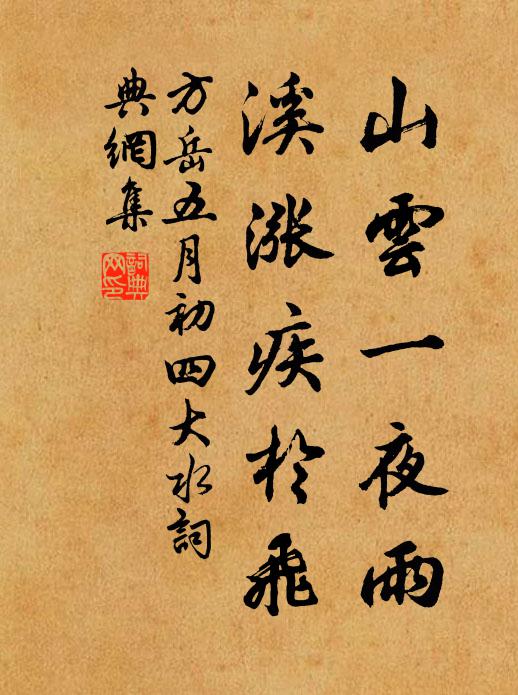 山雲一夜雨
溪漲疾於飛
方岳五月初四大水詞
典網集
詞典
网印